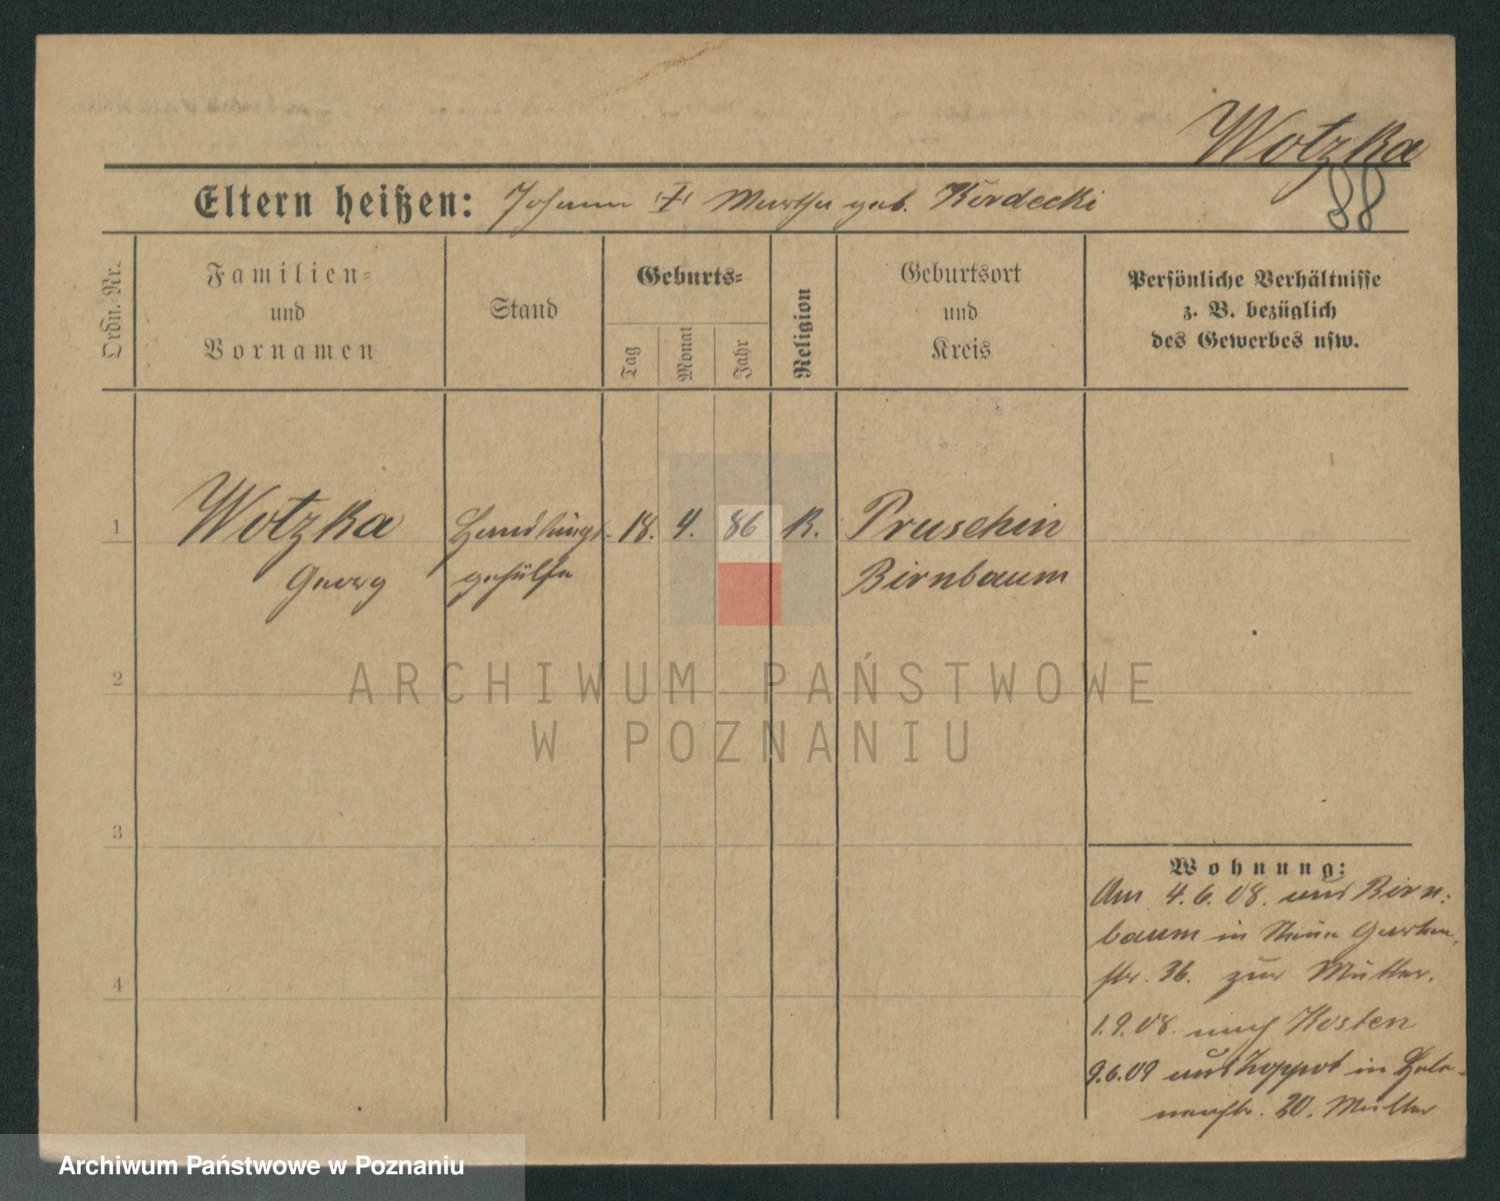 Wotzka
88
Eltern heißen: Johann † Martha geb. Kordecki
Ordn.-Nr.
Familien-
und
Vornamen
Stand
Geburts-
Tag
Monat
Jahr
Religion
Geburtsort
und
Kreis
Persönliche Verhältnisse
z. B. bezüglich
des Gewerbes usw.
1 Wotzka Handlungs- 18. 4. 86 K. Pruschin
Georg gehülfe Birnbaum
2
ARCHIWUM PAŃSTWOWE
W POZNANIU
3
4
Wohnung:
Am 4.6.08. aus Birn-
baum in
str. 36. zur Mutter.
1.9.08. nach Kosten
9.6.09 aus Zoppot in
20. Mutter
Archiwum Państwowe w Poznaniu